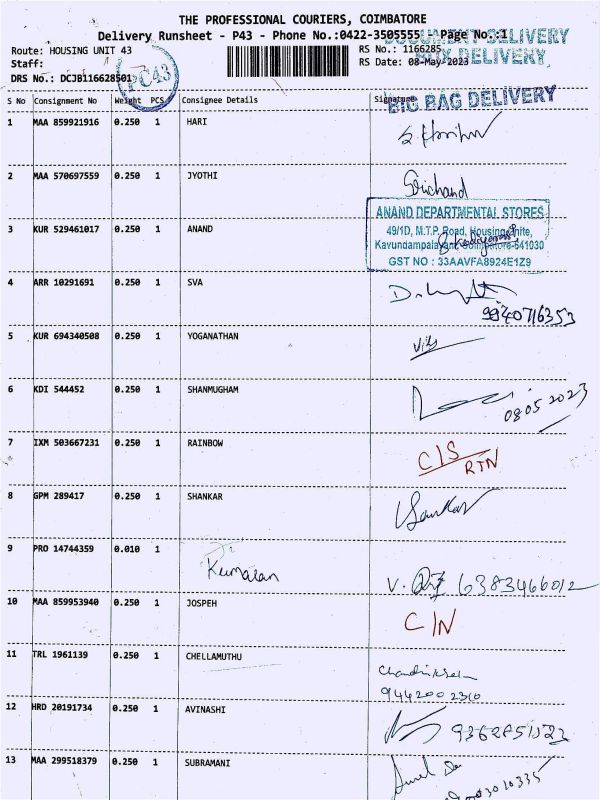 THE PROFESSIONAL COURIERS, COIMBATORE
Delivery Runsheet - P43 - Phone No.:0422-3505555 - Page No.:1
DOCUMENT DELIVERY
Route: HOUSING UNIT 43
RS No.: 1166285
BOX DELIVERY
Staff:
RS Date: 08-May-2023
PC43
DRS No.: DCJB116628501
BIG BAG DELIVERY
S No Consignment No Weight PCS Consignee Details Signature
1 MAA 859921916 0.250 1 HARI
2 MAA 570697559 0.250 1 JYOTHI Srichand
ANAND DEPARTMENTAL STORES
3 KUR 529461017 0.250 1 ANAND 49/1D, M.T.P. Road, Housing Unite,
Kavundampalayam, Coimbatore-641030
GST NO : 33AAVFA8924E1Z9
4 ARR 10291691 0.250 1 SVA
9940716353
5 KUR 694340508 0.250 1 YOGANATHAN
6 KDI 544452 0.250 1 SHANMUGHAM
08.05.2023
7 IXM 503667231 0.250 1 RAINBOW C/S
RTN
8 GPM 289417 0.250 1 SHANKAR Sankar
9 PRO 14744359 0.010 1
Kumaran V. 6383466012
10 MAA 859953940 0.250 1 JOSPEH C/N
11 TRL 1961139 0.250 1 CHELLAMUTHU
9442002310
12 HRD 20191734 0.250 1 AVINASHI
13 MAA 299518379 0.250 1 SUBRAMANI